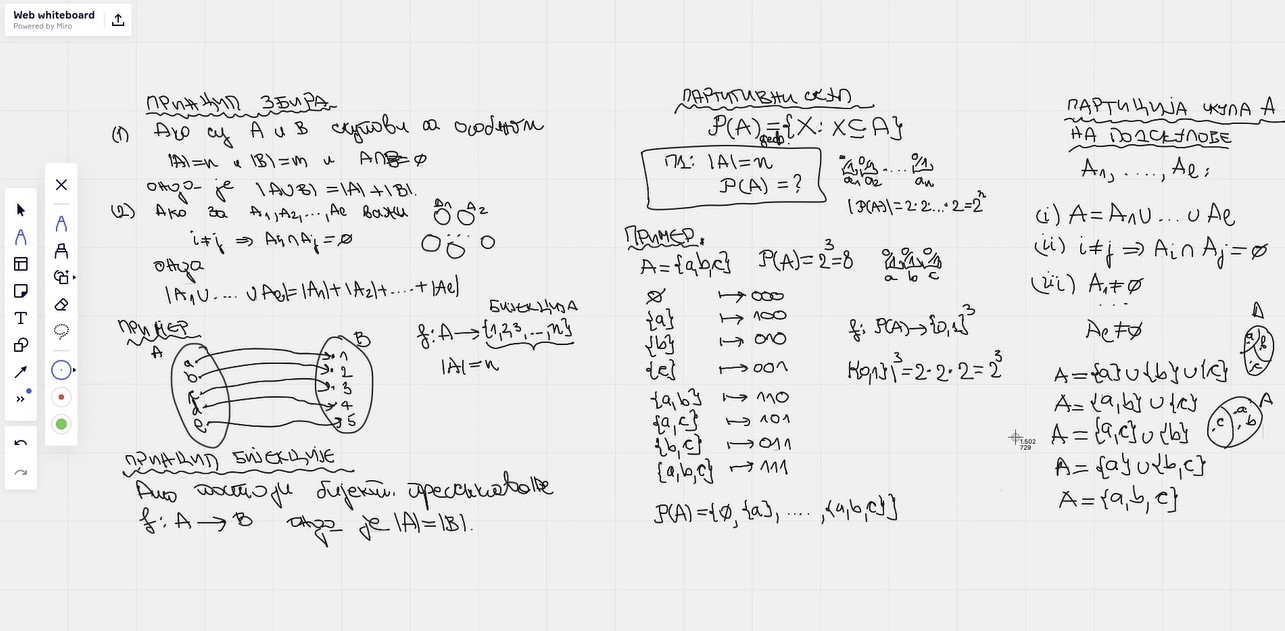 Web whiteboard
Powered by Miro
ПРИНЦИП ЗБИРА
(1) Ако су A и B скупови са особином
|A|=n и |B|=m и A∩B=∅
онда је |A∪B|=|A|+|B|.
(2) Ако за A₁,A₂,...,Aℓ важи
i≠j ⇒ Ai∩Aj=∅
онда
|A₁∪....∪Aℓ|=|A₁|+|A₂|+....+|Aℓ|
A₁ A₂
...
ПРИМЕР
A B
a 1
b 2
c 3
d 4
e 5
БИЈЕКЦИЈА
f: A → {1,2,3,...,n}
|A|=n
ПРИНЦИП БИЈЕКЦИЈЕ
Ако постоји бијект. пресликавање
f: A → B онда је |A|=|B|.
ПАРТИТИВНИ СКУП
P(A)={X: X⊆A}
деф.
П1: |A|=n
P(A)=?
0/1 0/1 .... 0/1
a₁ a₂ aₙ
|P(A)|=2·2·...·2=2ⁿ
ПРИМЕР.
A={a,b,c} P(A)=2³=8
0/1 0/1 0/1
a b c
∅ ↦ 000
{a} ↦ 100
{b} ↦ 010
{c} ↦ 001
{a,b} ↦ 110
{a,c} ↦ 101
{b,c} ↦ 011
{a,b,c} ↦ 111
f: P(A)→{0,1}³
|{0,1}|³=2·2·2=2³
P(A)={∅,{a},....,{a,b,c}}
1.502
729
ПАРТИЦИЈА СКУПА A
НА ПОДСКУПОВЕ
A₁,....,Aℓ:
(i) A=A₁∪...∪Aℓ
(ii) i≠j ⇒ Ai∩Aj=∅
(iii) A₁≠∅
...
Aℓ≠∅
A
a b
c
A={a}∪{b}∪{c}
A={a,b}∪{c}
A
c a b
A={a,c}∪{b}
A={a}∪{b,c}
A={a,b,c}